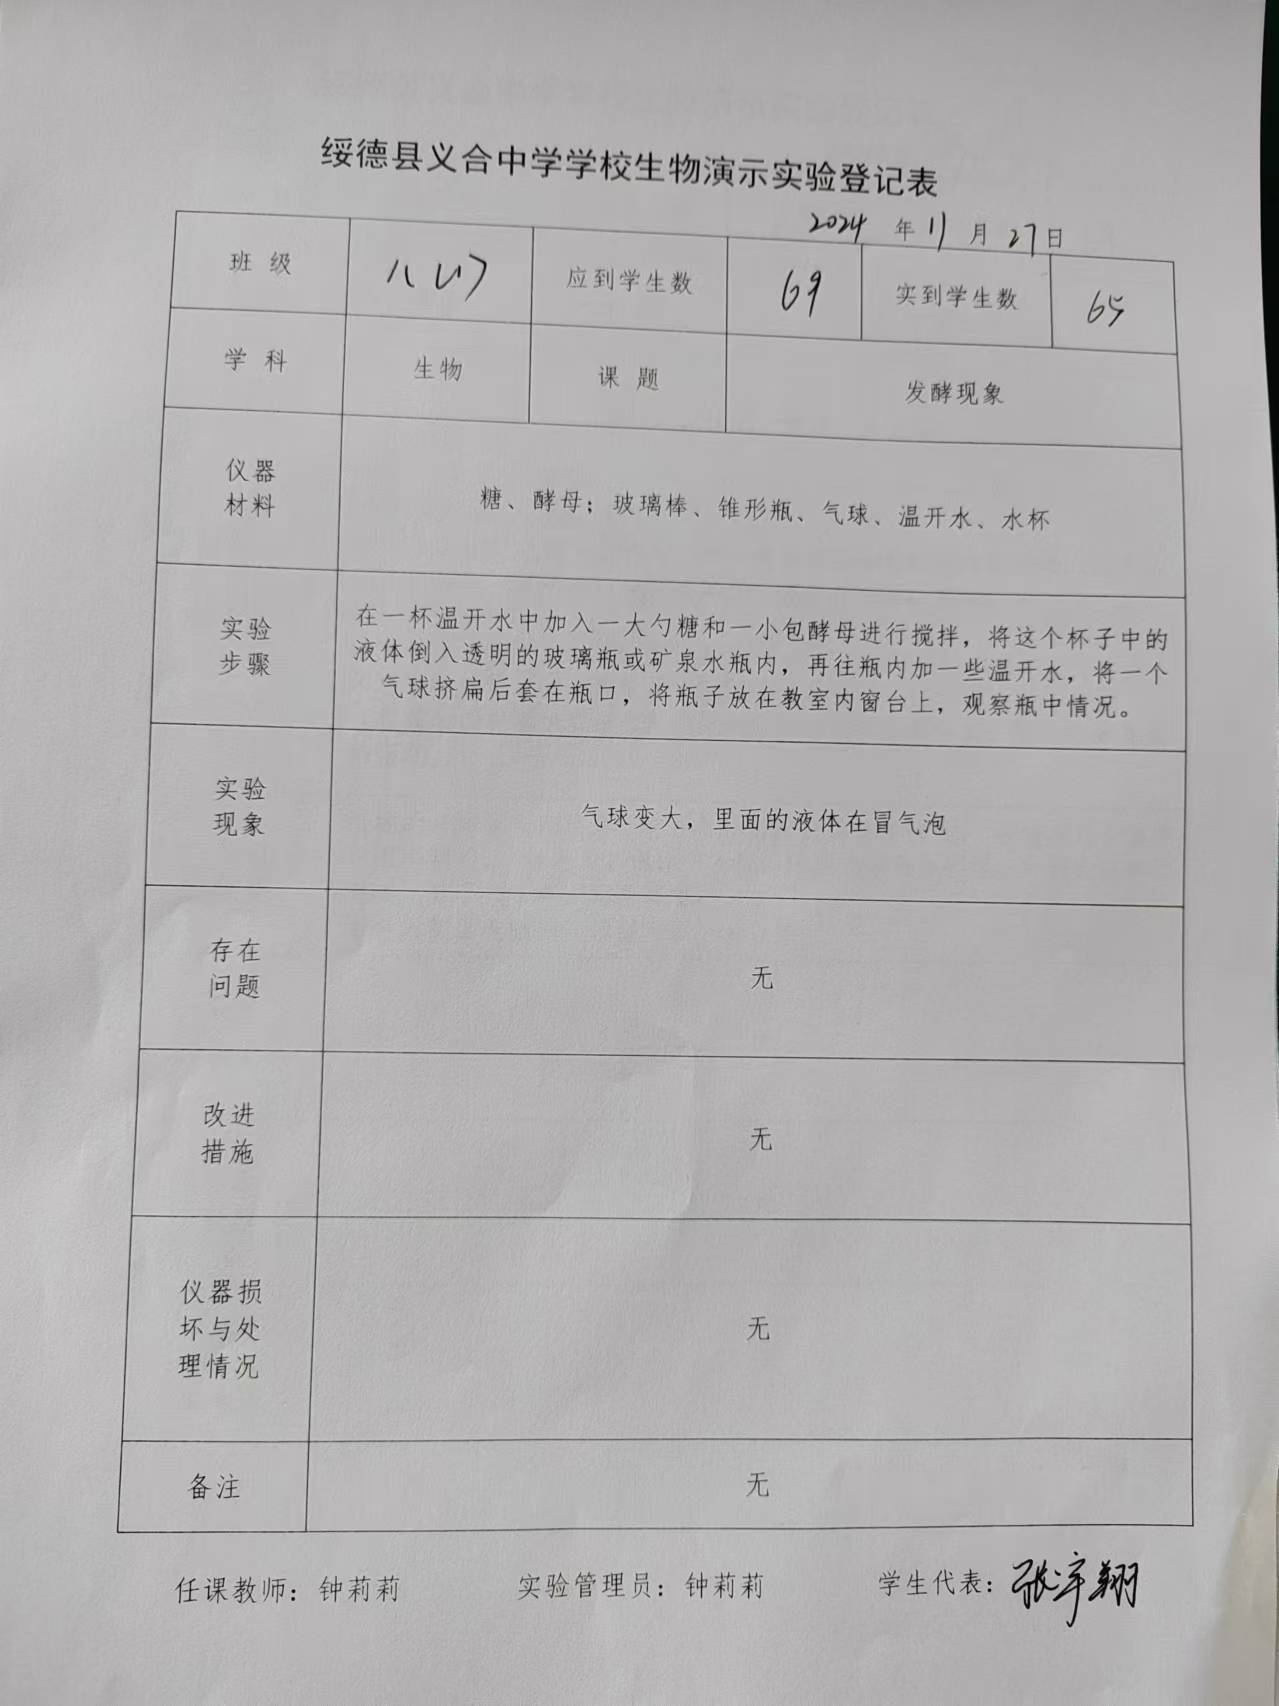 绥德县义合中学学校生物演示实验登记表
2024 年 11 月 27 日
班 级 八(1) 应到学生数 69 实到学生数 65
学 科 生物 课 题 发酵现象
仪器
材料
糖、酵母；玻璃棒、锥形瓶、气球、温开水、水杯
实验
步骤
在一杯温开水中加入一大勺糖和一小包酵母进行搅拌，将这个杯子中的
液体倒入透明的玻璃瓶或矿泉水瓶内，再往瓶内加一些温开水，将一个
气球挤扁后套在瓶口，将瓶子放在教室内窗台上，观察瓶中情况。
实验
现象
气球变大，里面的液体在冒气泡
存在
问题
无
改进
措施
无
仪器损
坏与处
理情况
无
备注 无
任课教师：钟莉莉 实验管理员：钟莉莉 学生代表：张宇翔